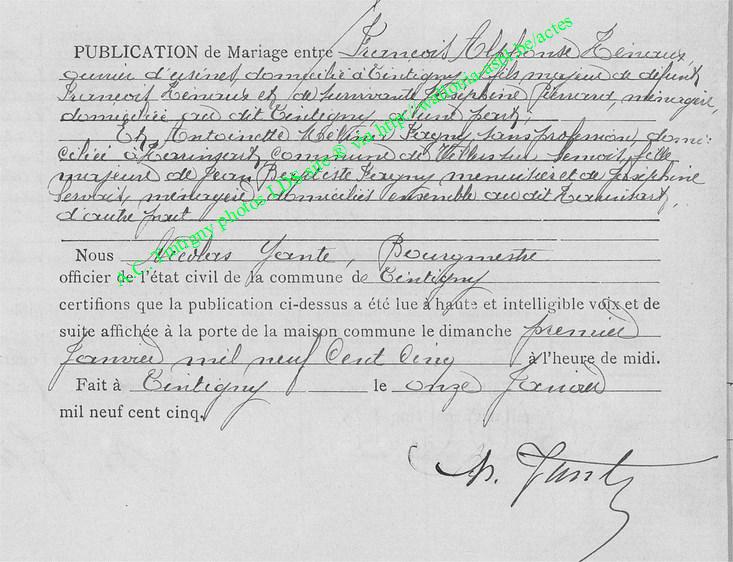 PUBLICATION de Mariage entre François Alphonse Hénaux,
ouvrier d'usines, domicilié à Tintigny, fils majeur de défunt
François Hénaux et de survivante Joséphine Pierrard, ménagère,
domiciliée au dit Tintigny, d'une part,
Et Antoinette Mélina Pagny, sans profession, domi-
ciliée à commune de Villers sur Semois, fille
majeure de Jean Baptiste Pagny menuisier et de Joséphine
Servais, ménagère domiciliés ensemble au dit
d'autre part
Nous Nicolas Yante, Bourgmestre
officier de l'état civil de la commune de Tintigny
certifions que la publication ci-dessus a été lue à haute et intelligible voix et de
suite affichée à la porte de la maison commune le dimanche premier
Janvier mil neuf Cent Cinq à l'heure de midi.
Fait à Tintigny le onze Janvier
mil neuf cent cinq.
N. Yante
A.C. Tintigny photos LDS site ® via http://wallonia-asbl.be/actes